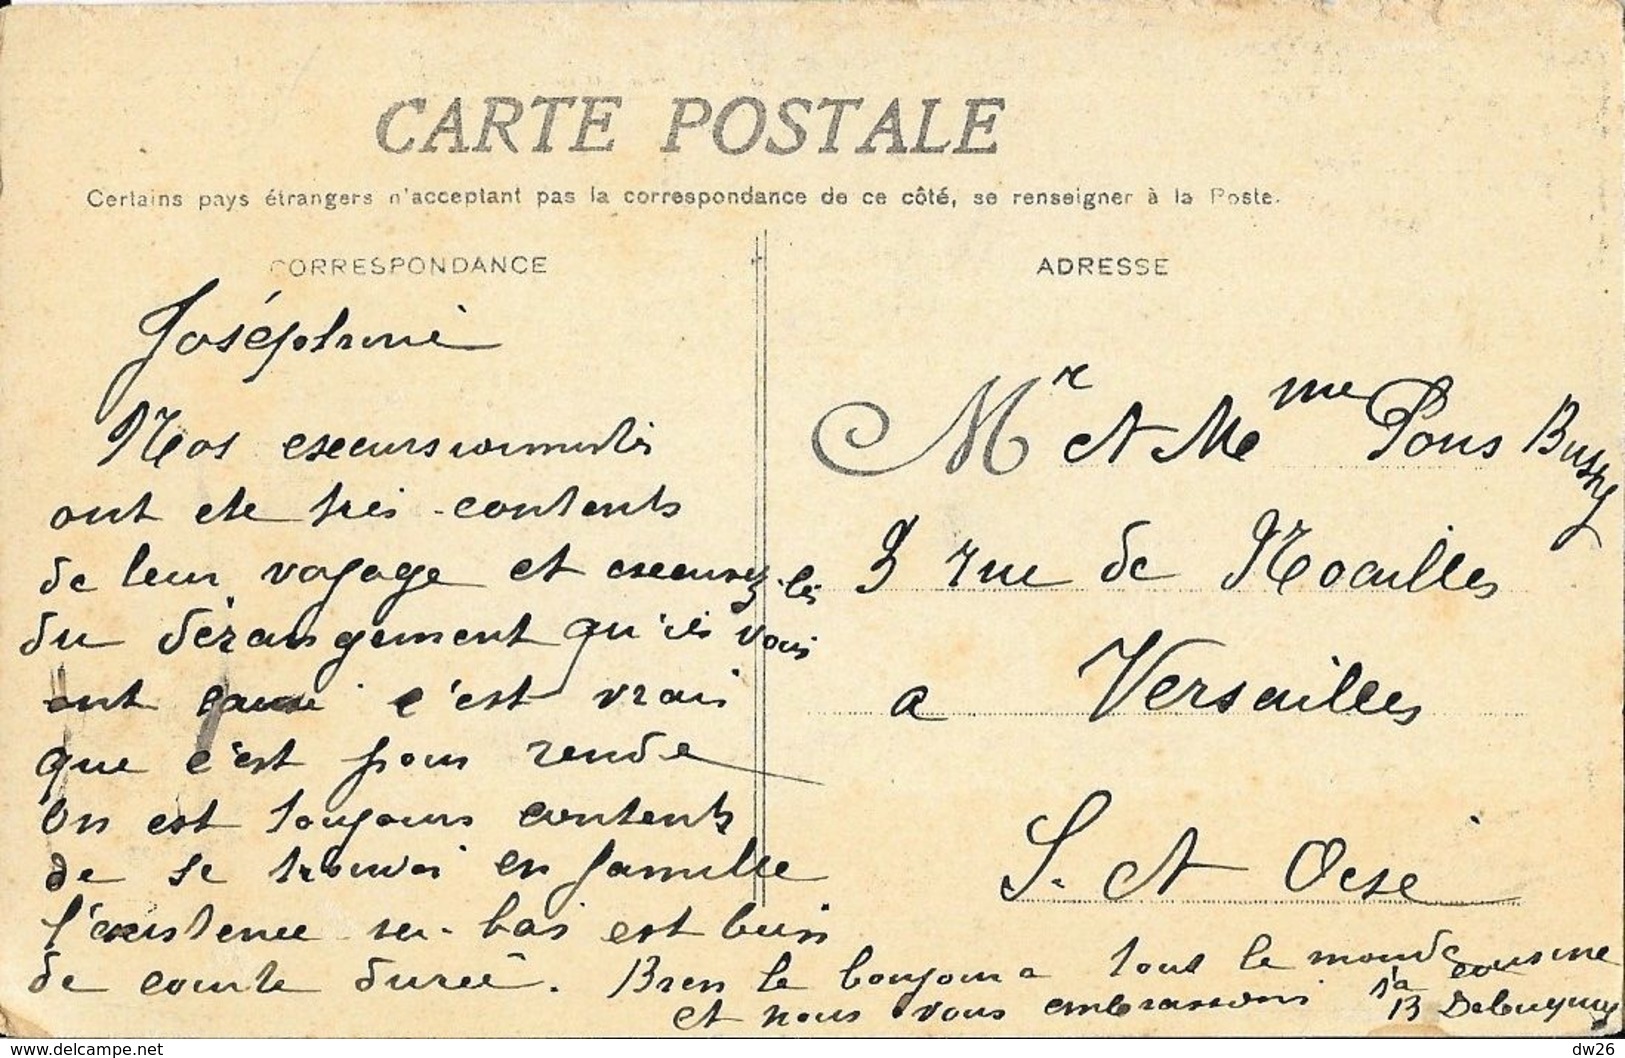 CARTE POSTALE
Certains pays étrangers n'acceptant pas la correspondance de ce côté, se renseigner à la Poste.
CORRESPONDANCE
ADRESSE
Joséphine
Nos excursionnistes
ont ete très contents
de leur voyage et excusez-les
du dérangement qu'ils vous
ont causé c'est vrai
que c'est pour rende
on est toujours contents
de se trouver en famille
l'existence ici-bas est bien
de courte durée. Bien le bonjour a tout le monde
et nous vous embrassons
cousine
Mr et Mme Pons Bussy
9 rue de Noailles
a Versailles
S. et Oise
dw26
www.delcampe.net